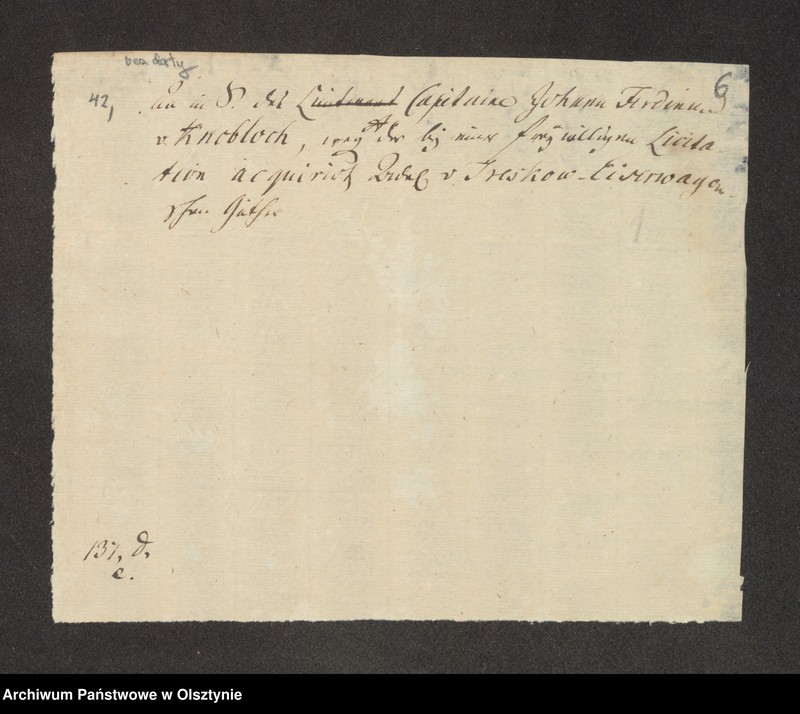 bez daty
6
42,
an in S. des Lieutenant Capitaine Johann Ferdinand
v. Knobloch, weg. der bey einer freywilligen Licita
tion acquirirt v. Treskow-Eiserwagen-
schen Güther
1
137. d.
c.
Archiwum Państwowe w Olsztynie